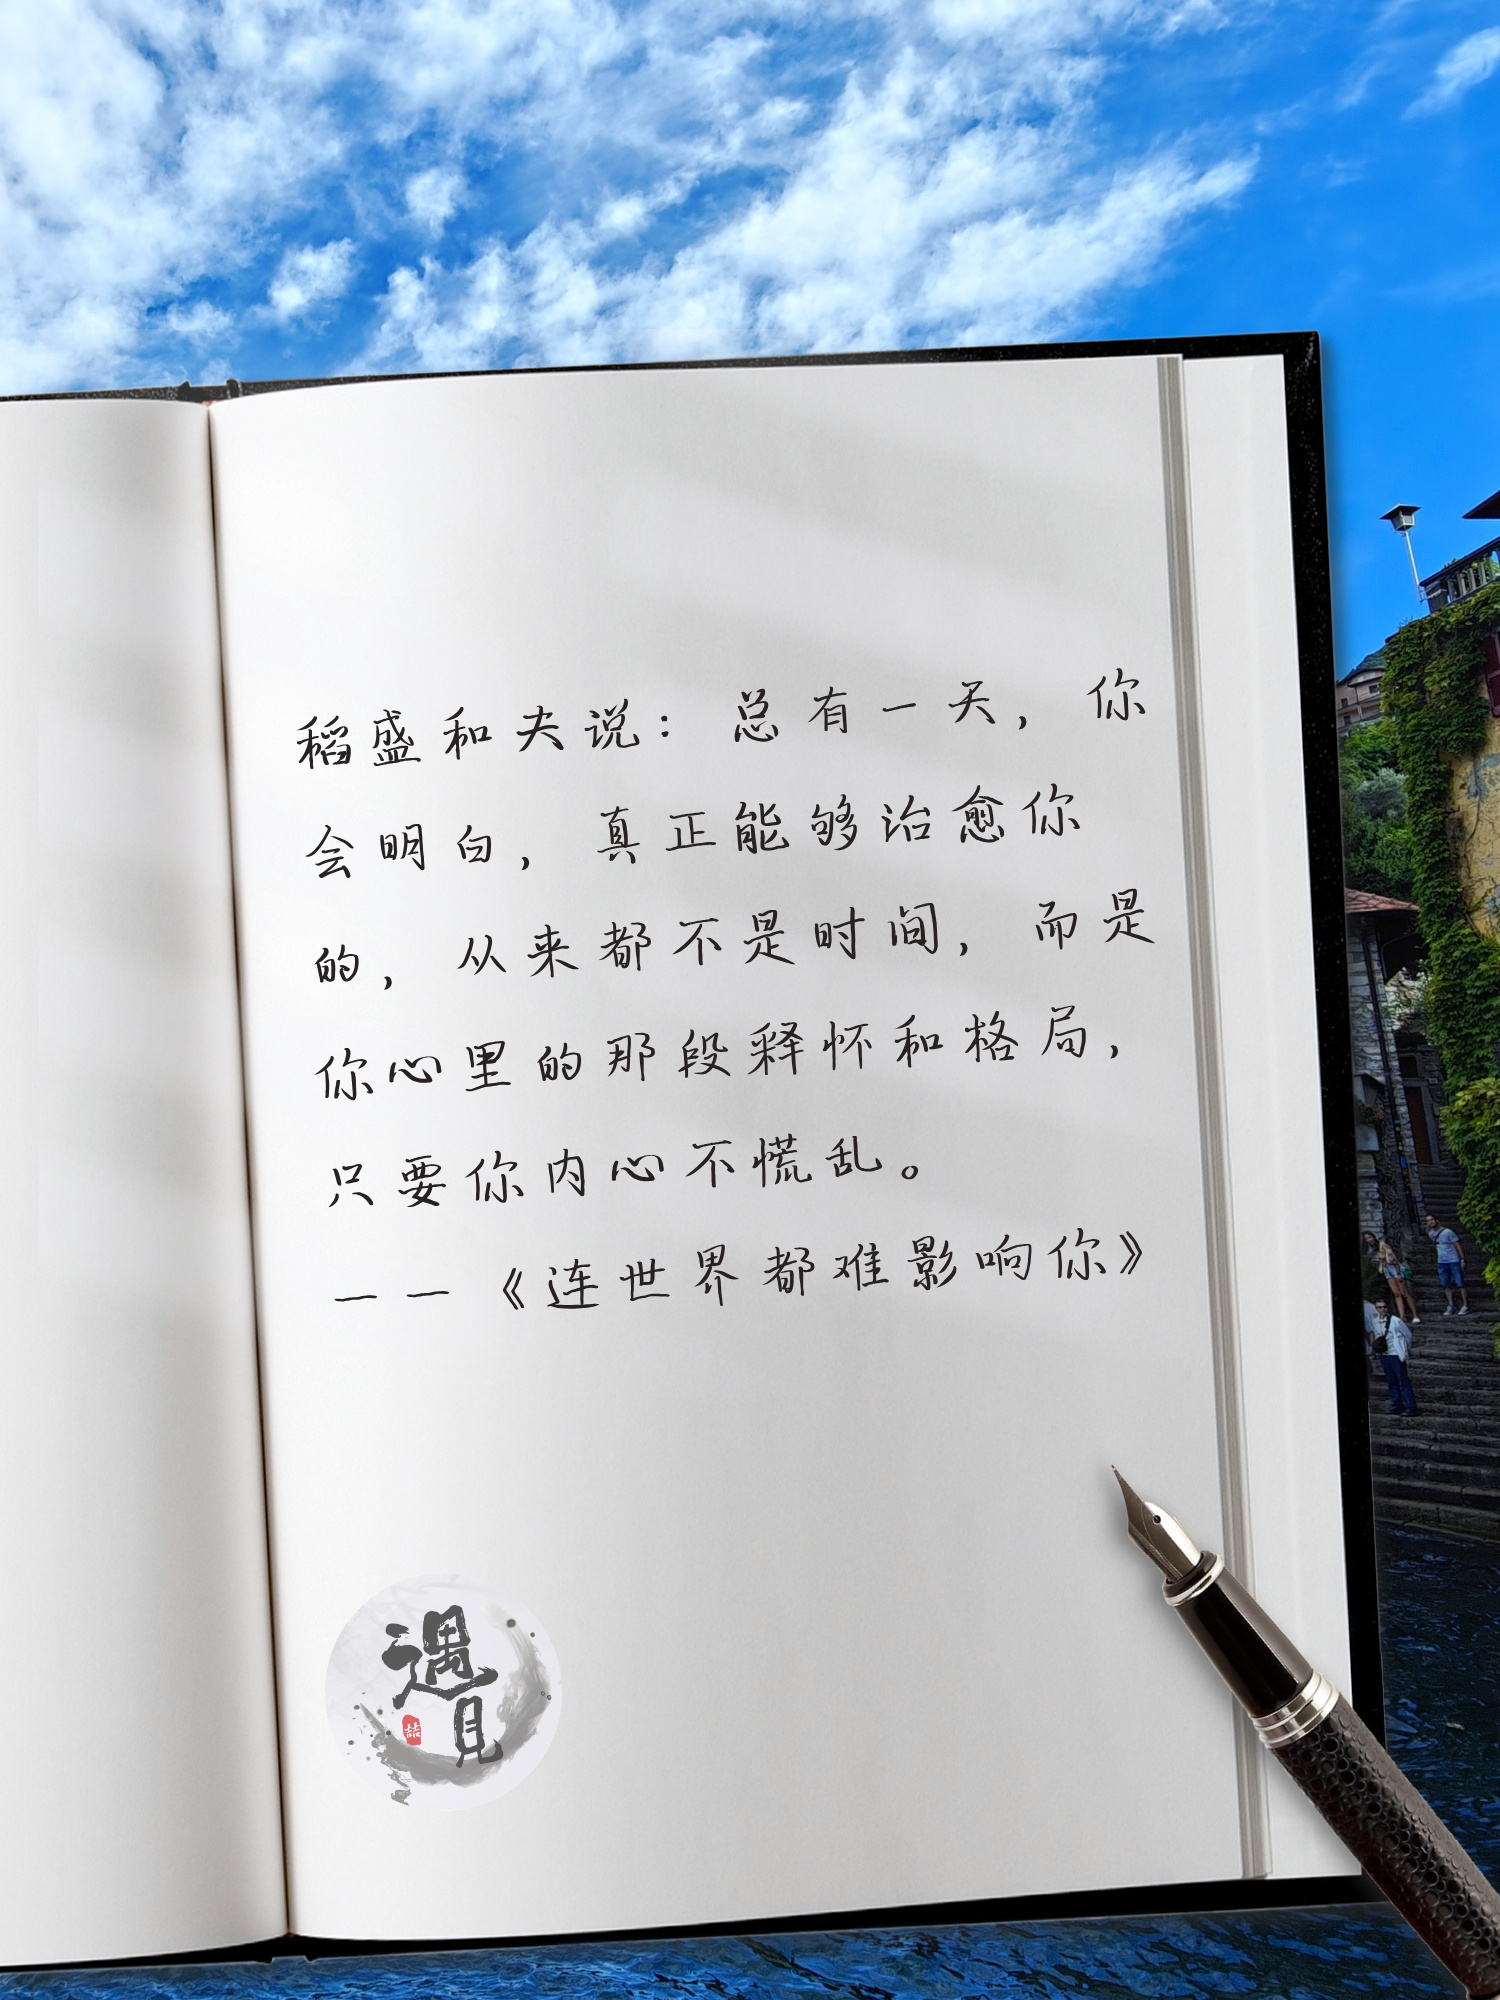 稻盛和夫说：总有一天，你
会明白，真正能够治愈你
的，从来都不是时间，而是
你心里的那段释怀和格局，
只要你内心不慌乱。
——《连世界都难影响你》
遇
见
喆